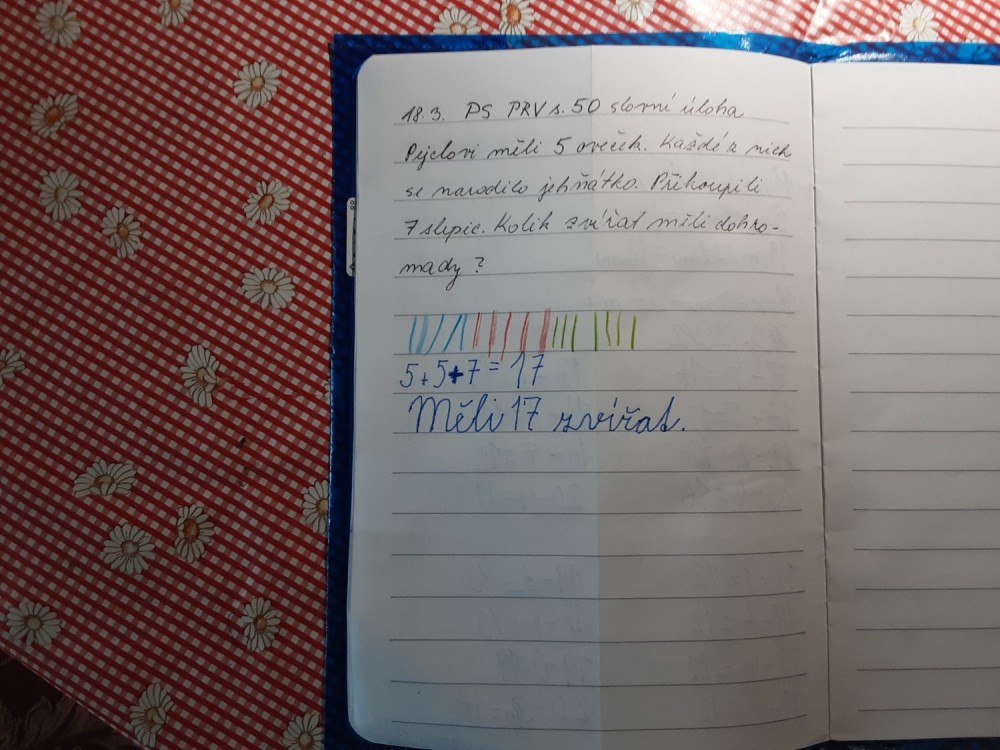 18.3. PS PRV s. 50 slovní úloha
Pejclovi měli 5 oveček. Každé z nich
se narodilo jehňátko. Přikoupili
7 slepic. Kolik zvířat měli dohro-
mady?
5+5+7=17
Měli 17 zvířat.